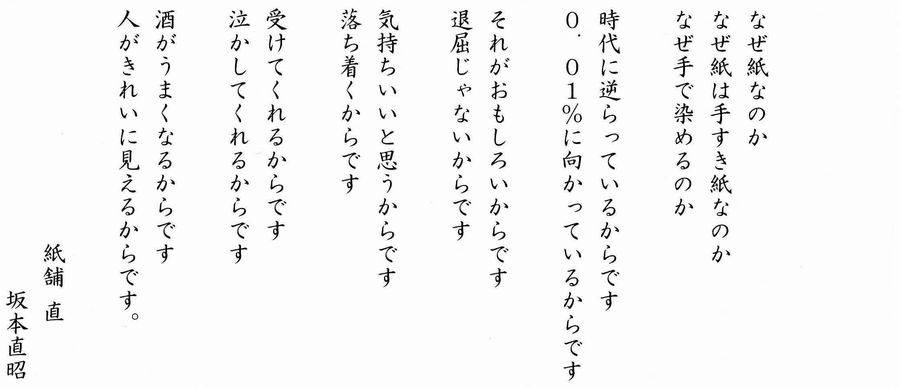 なぜ紙なのか
なぜ紙は手すき紙なのか
なぜ手で染めるのか
時代に逆らっているからです
0．01％に向かっているからです
それがおもしろいからです
退屈じゃないからです
気持ちいいと思うからです
落ち着くからです
受けてくれるからです
泣かしてくれるからです
酒がうまくなるからです
人がきれいに見えるからです。
紙舗 直
坂本直昭